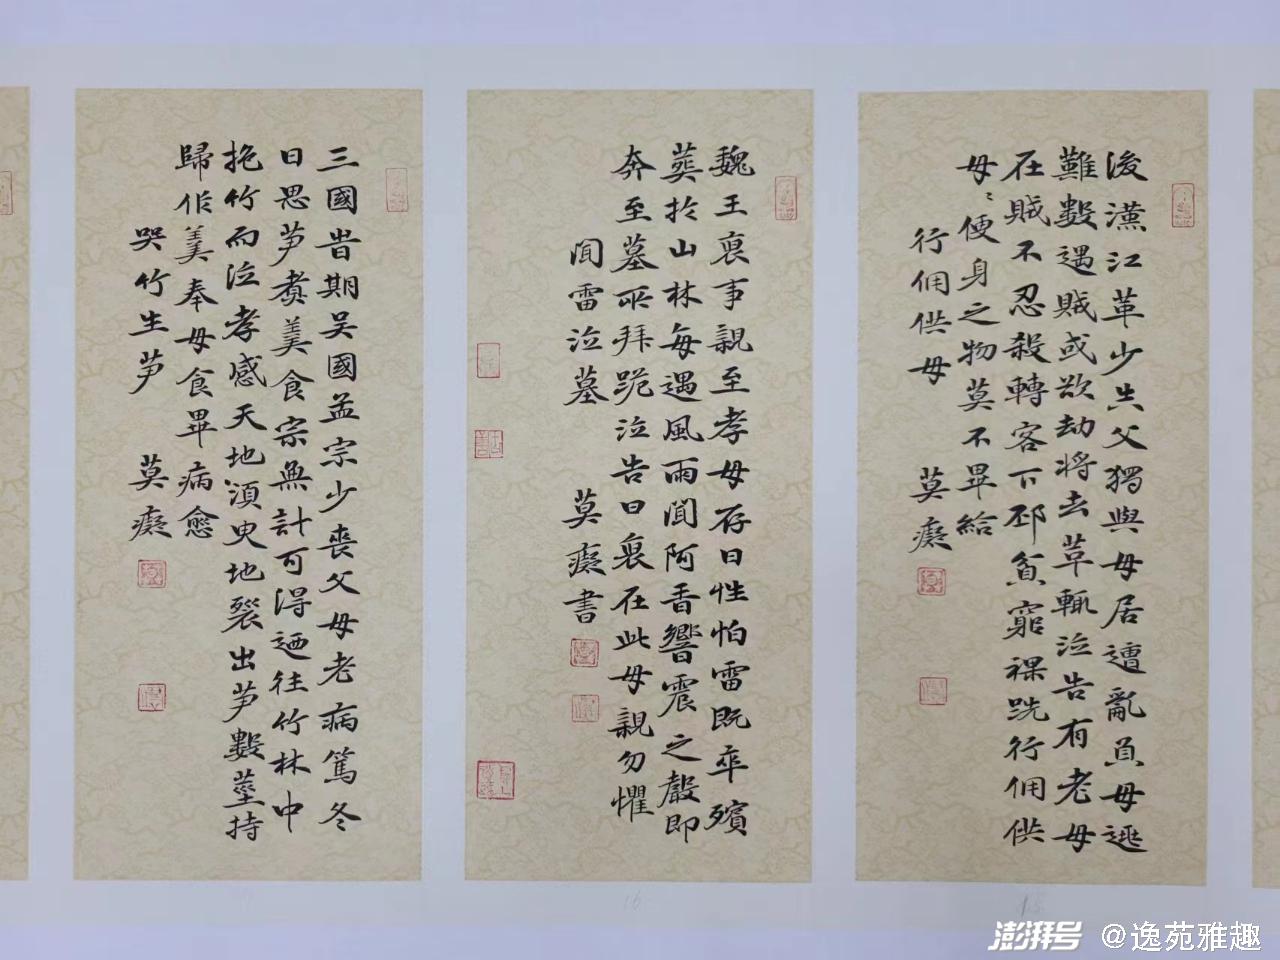 後漢江革少失父獨與母居遭亂負母逃
難數遇賊或欲劫將去革輒泣告有老母
在賊不忍殺轉客下邳貧窮裸跣行佣供
母〻便身之物莫不畢給
行佣供母
莫癡
魏王裒事親至孝母存日性怕雷既卒殯
葬於山林每遇風雨聞阿香響震之聲即
奔至墓所拜跪泣告曰裒在此母親勿懼
聞雷泣墓
莫癡書
三國時期吴國孟宗少喪父母老病篤冬
日思笋煮羹食宗無計可得迺往竹林中
抱竹而泣孝感天地須臾地裂出笋數莖持
歸作羹奉母食畢病愈
哭竹生笋
莫癡
16
15
澎湃号 @逸苑雅趣